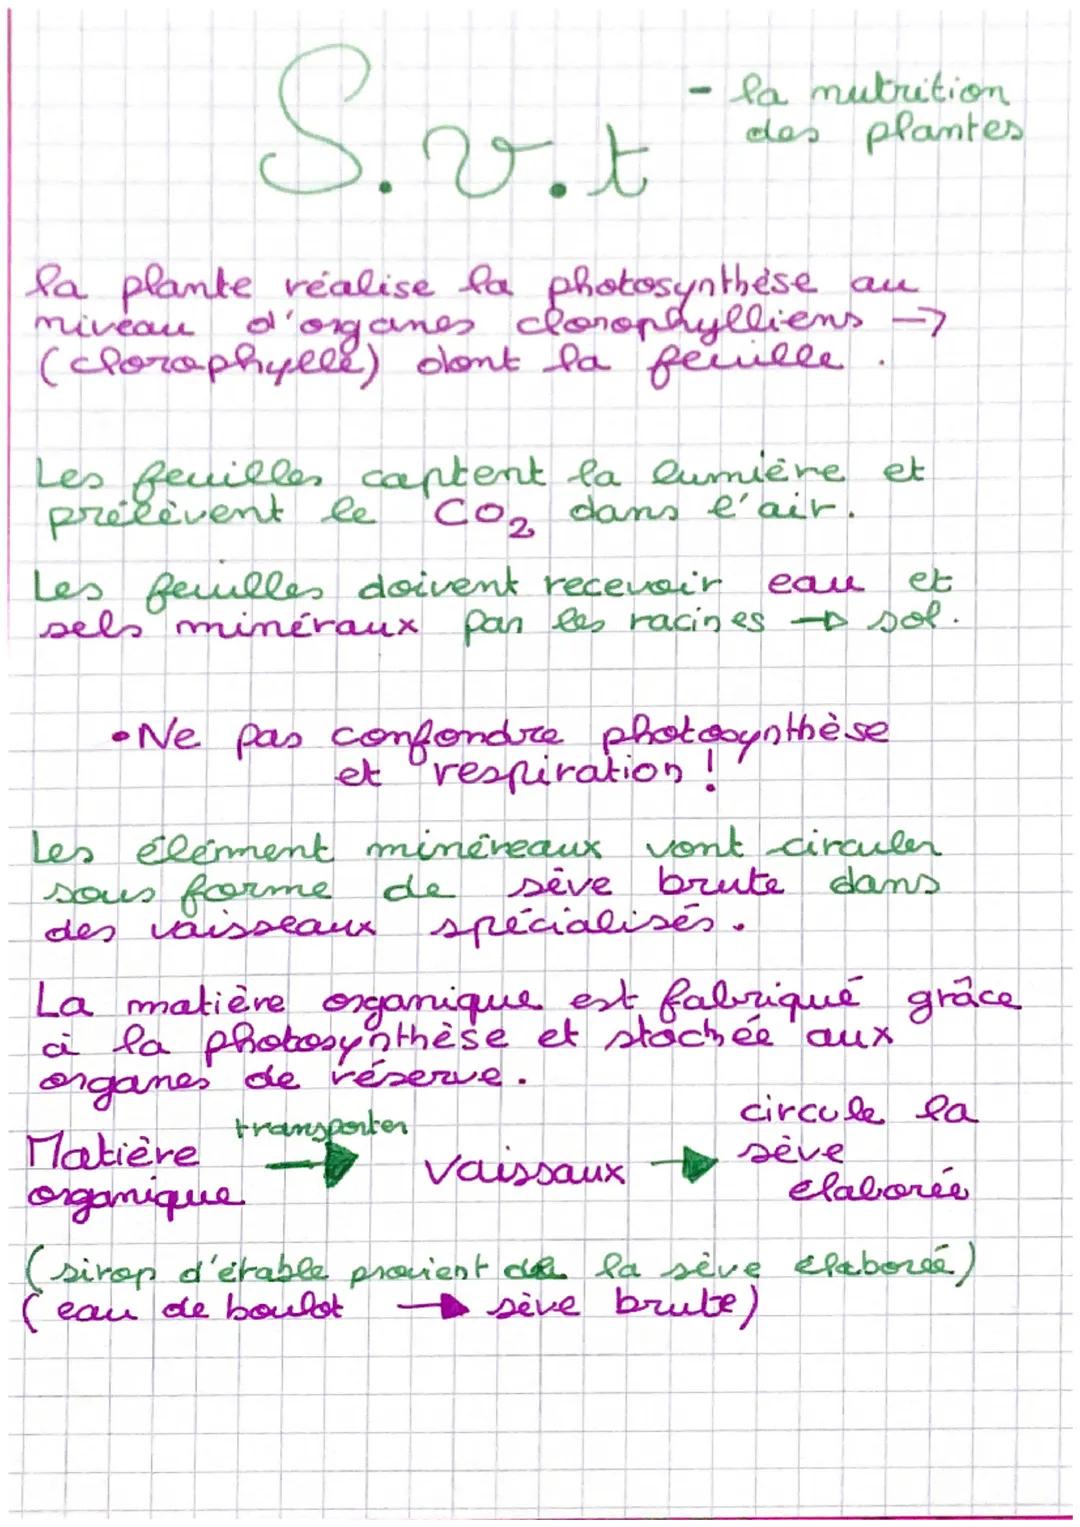 S.v.t
- la nutrition
des plantes
la plante réalise la photosynthèse au
niveau d'organes clorophylliens →
(clorophylle) dont la feuille.
Les feuilles captent la lumière et
prélèvent le CO₂ dans l'air.
Les feuilles doivent recevoir eau et
sels minéraux par les racines → sol.
• Ne pas confondre photosynthèse
et respiration !
Les élément minéreaux vont circuler
sous forme de sève brute dans
des vaisseaux spécialisés.
La matière organique est fabriqué grâce
à la photosynthèse et stochée aux
organes de réserve.
transporter
circule la
Matière → vaissaux → sève
organique élaborée
(sirop d'érable provient de la sève élaboreé)
(eau de boulot → sève brute)